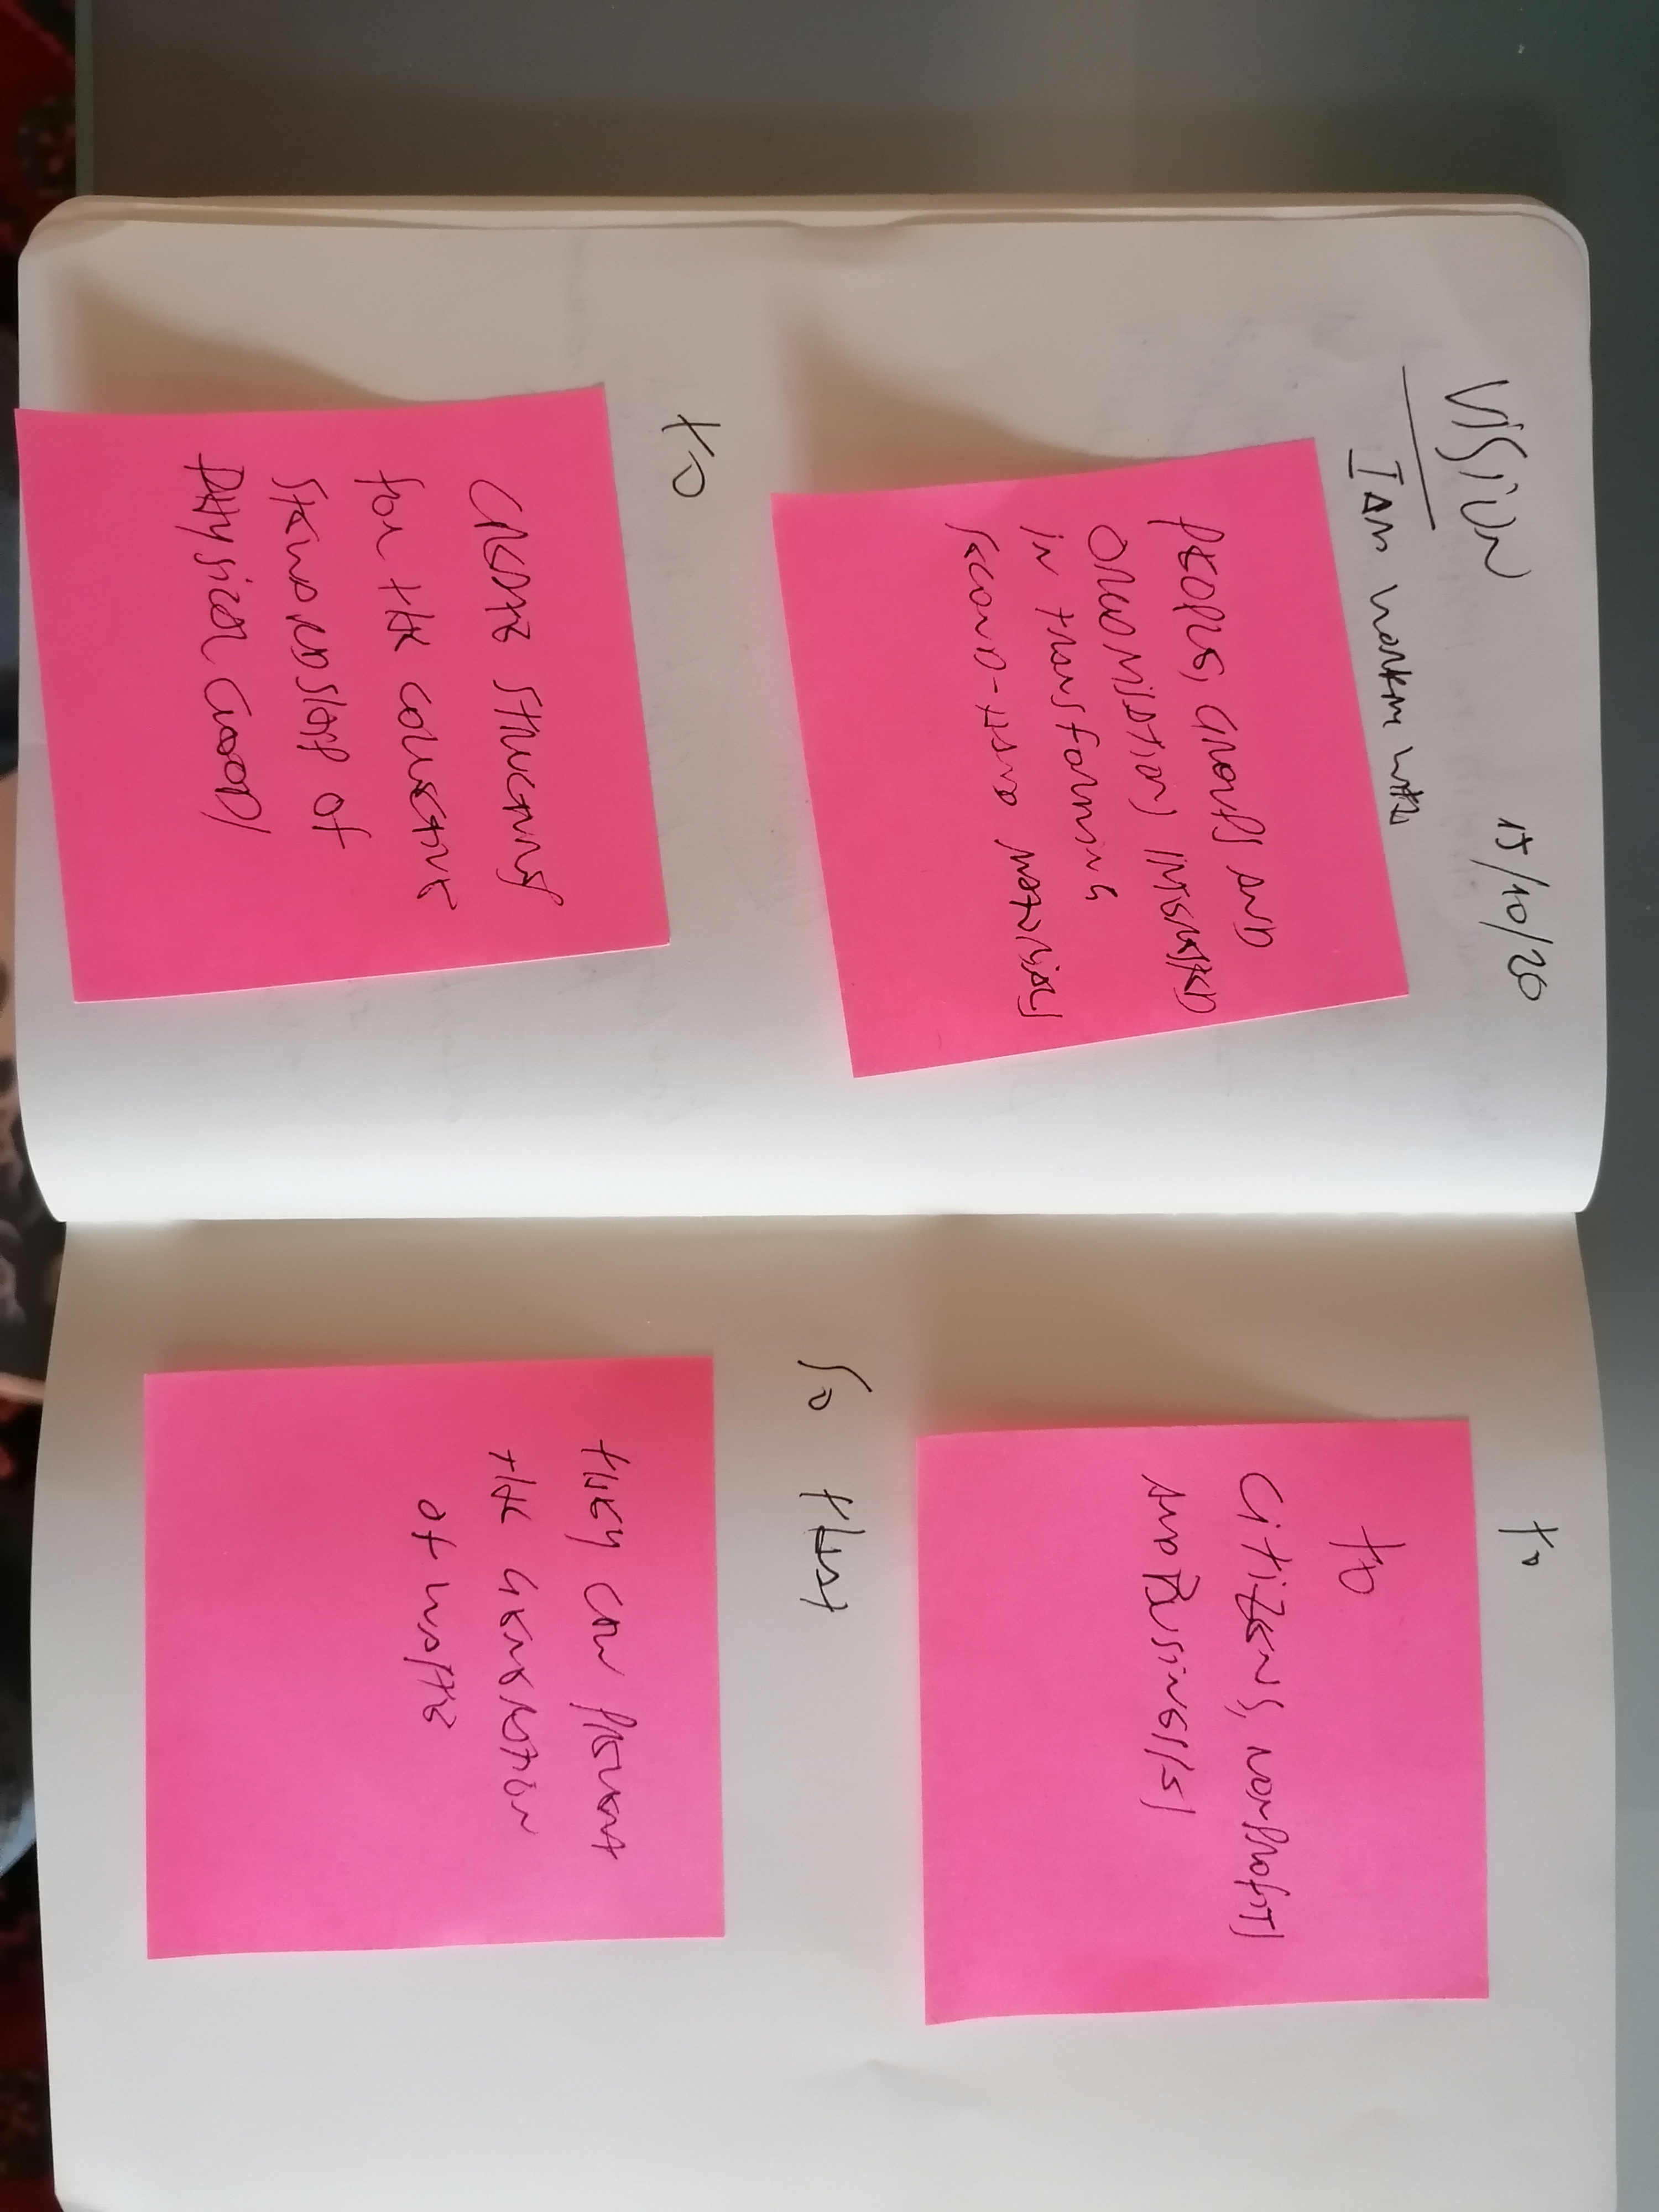 VISION
15/10/20
I AM WORKING WITH
PEOPLE, GROUPS AND
ORGANISATIONS INTERESTED
IN TRANSFORMING
SECOND-HAND MATERIALS
to
CREATE STRUCTURES
FOR THE COLLECTIVE
STEWARDSHIP OF
PHYSICAL GOODS
to
to
CITIZENS, NONPROFITS
AND BUSINESSES
SO THAT
THEY CAN PREVENT
THE GENERATION
OF WASTE